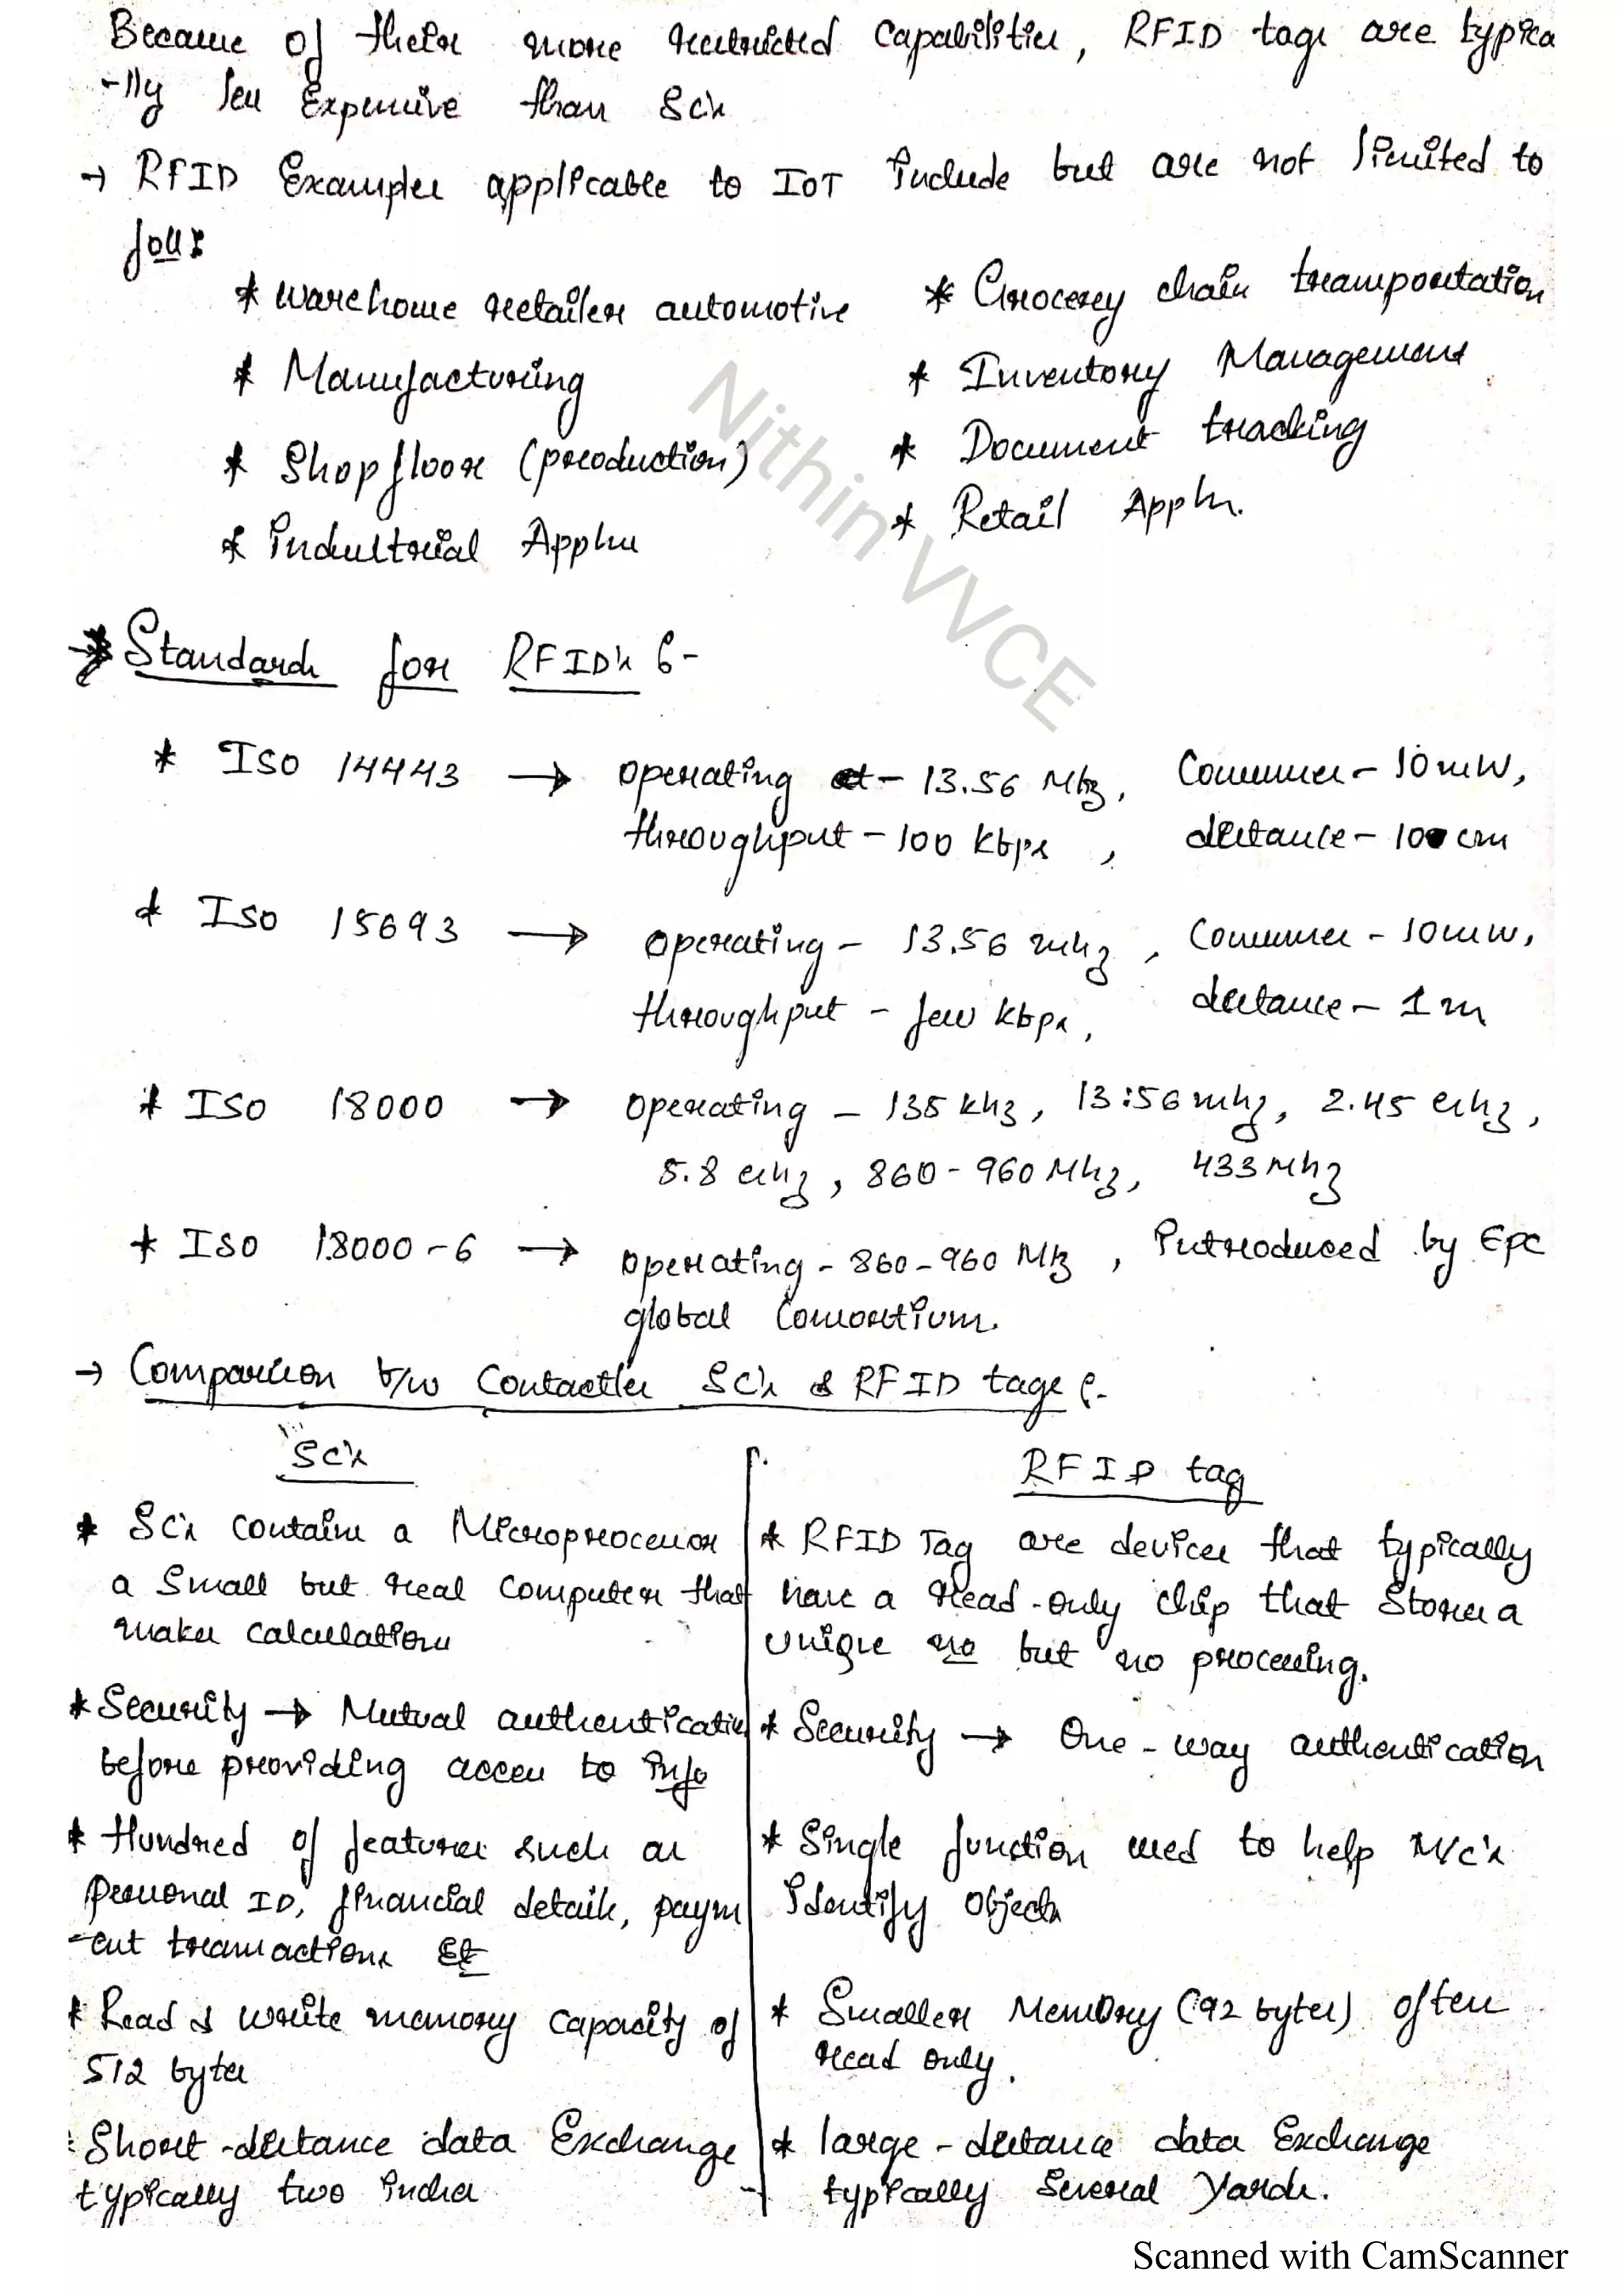 Because of their more restricted capabilities, RFID tags are typica
-lly less Expensive than SC's
→ RFID Examples applicable to IoT include but are not limited to
foll:
* warehouse retailer automotive
* Grocery chain transportation
* Manufacturing
* Inventory Management
* Shop floor (production)
* Document tracking
* Industrial Applns
* Retail Applns.
Nithin VVCE
* Standards for RFID's :-
* ISO 14443 → operating at - 13.56 Mhz, Consumes - 10mW,
throughput - 100 kbps, distance - 100 cm
* ISO 15693 → operating - 13.56 mhz, Consumes - 10mW,
throughput - few kbps, distance - 1 m
* ISO 18000 → operating - 135 khz, 13:56 mhz, 2.45 Ghz,
5.8 Ghz, 860 - 960 Mhz, 433 Mhz
* ISO 18000-6 → operating - 860-960 Mhz, Introduced by Epc
global Consortium.
→ Comparision b/w Contactless SC's & RFID tags :-
SC's
RFID tag
* SC's contains a Microprocessor
a Small but real Computer that
makes calculations
* RFID Tag are devices that typically
have a read-only chip that Stores a
unique no but no processing.
* Security → Mutual authentication
before providing access to info
* Security → One-way authentication
* Hundred of features such as
personal ID, financial details, paym
-ent transactions Etc
* Single function used to help M/c's
Identify Objects
* Read & write memory capacity of
512 bytes
* Smaller Memory (92 bytes) often
read only.
* Short-distance data Exchange
typically two inches
* large-distance data Exchange
typically Several Yards.
Scanned with CamScanner